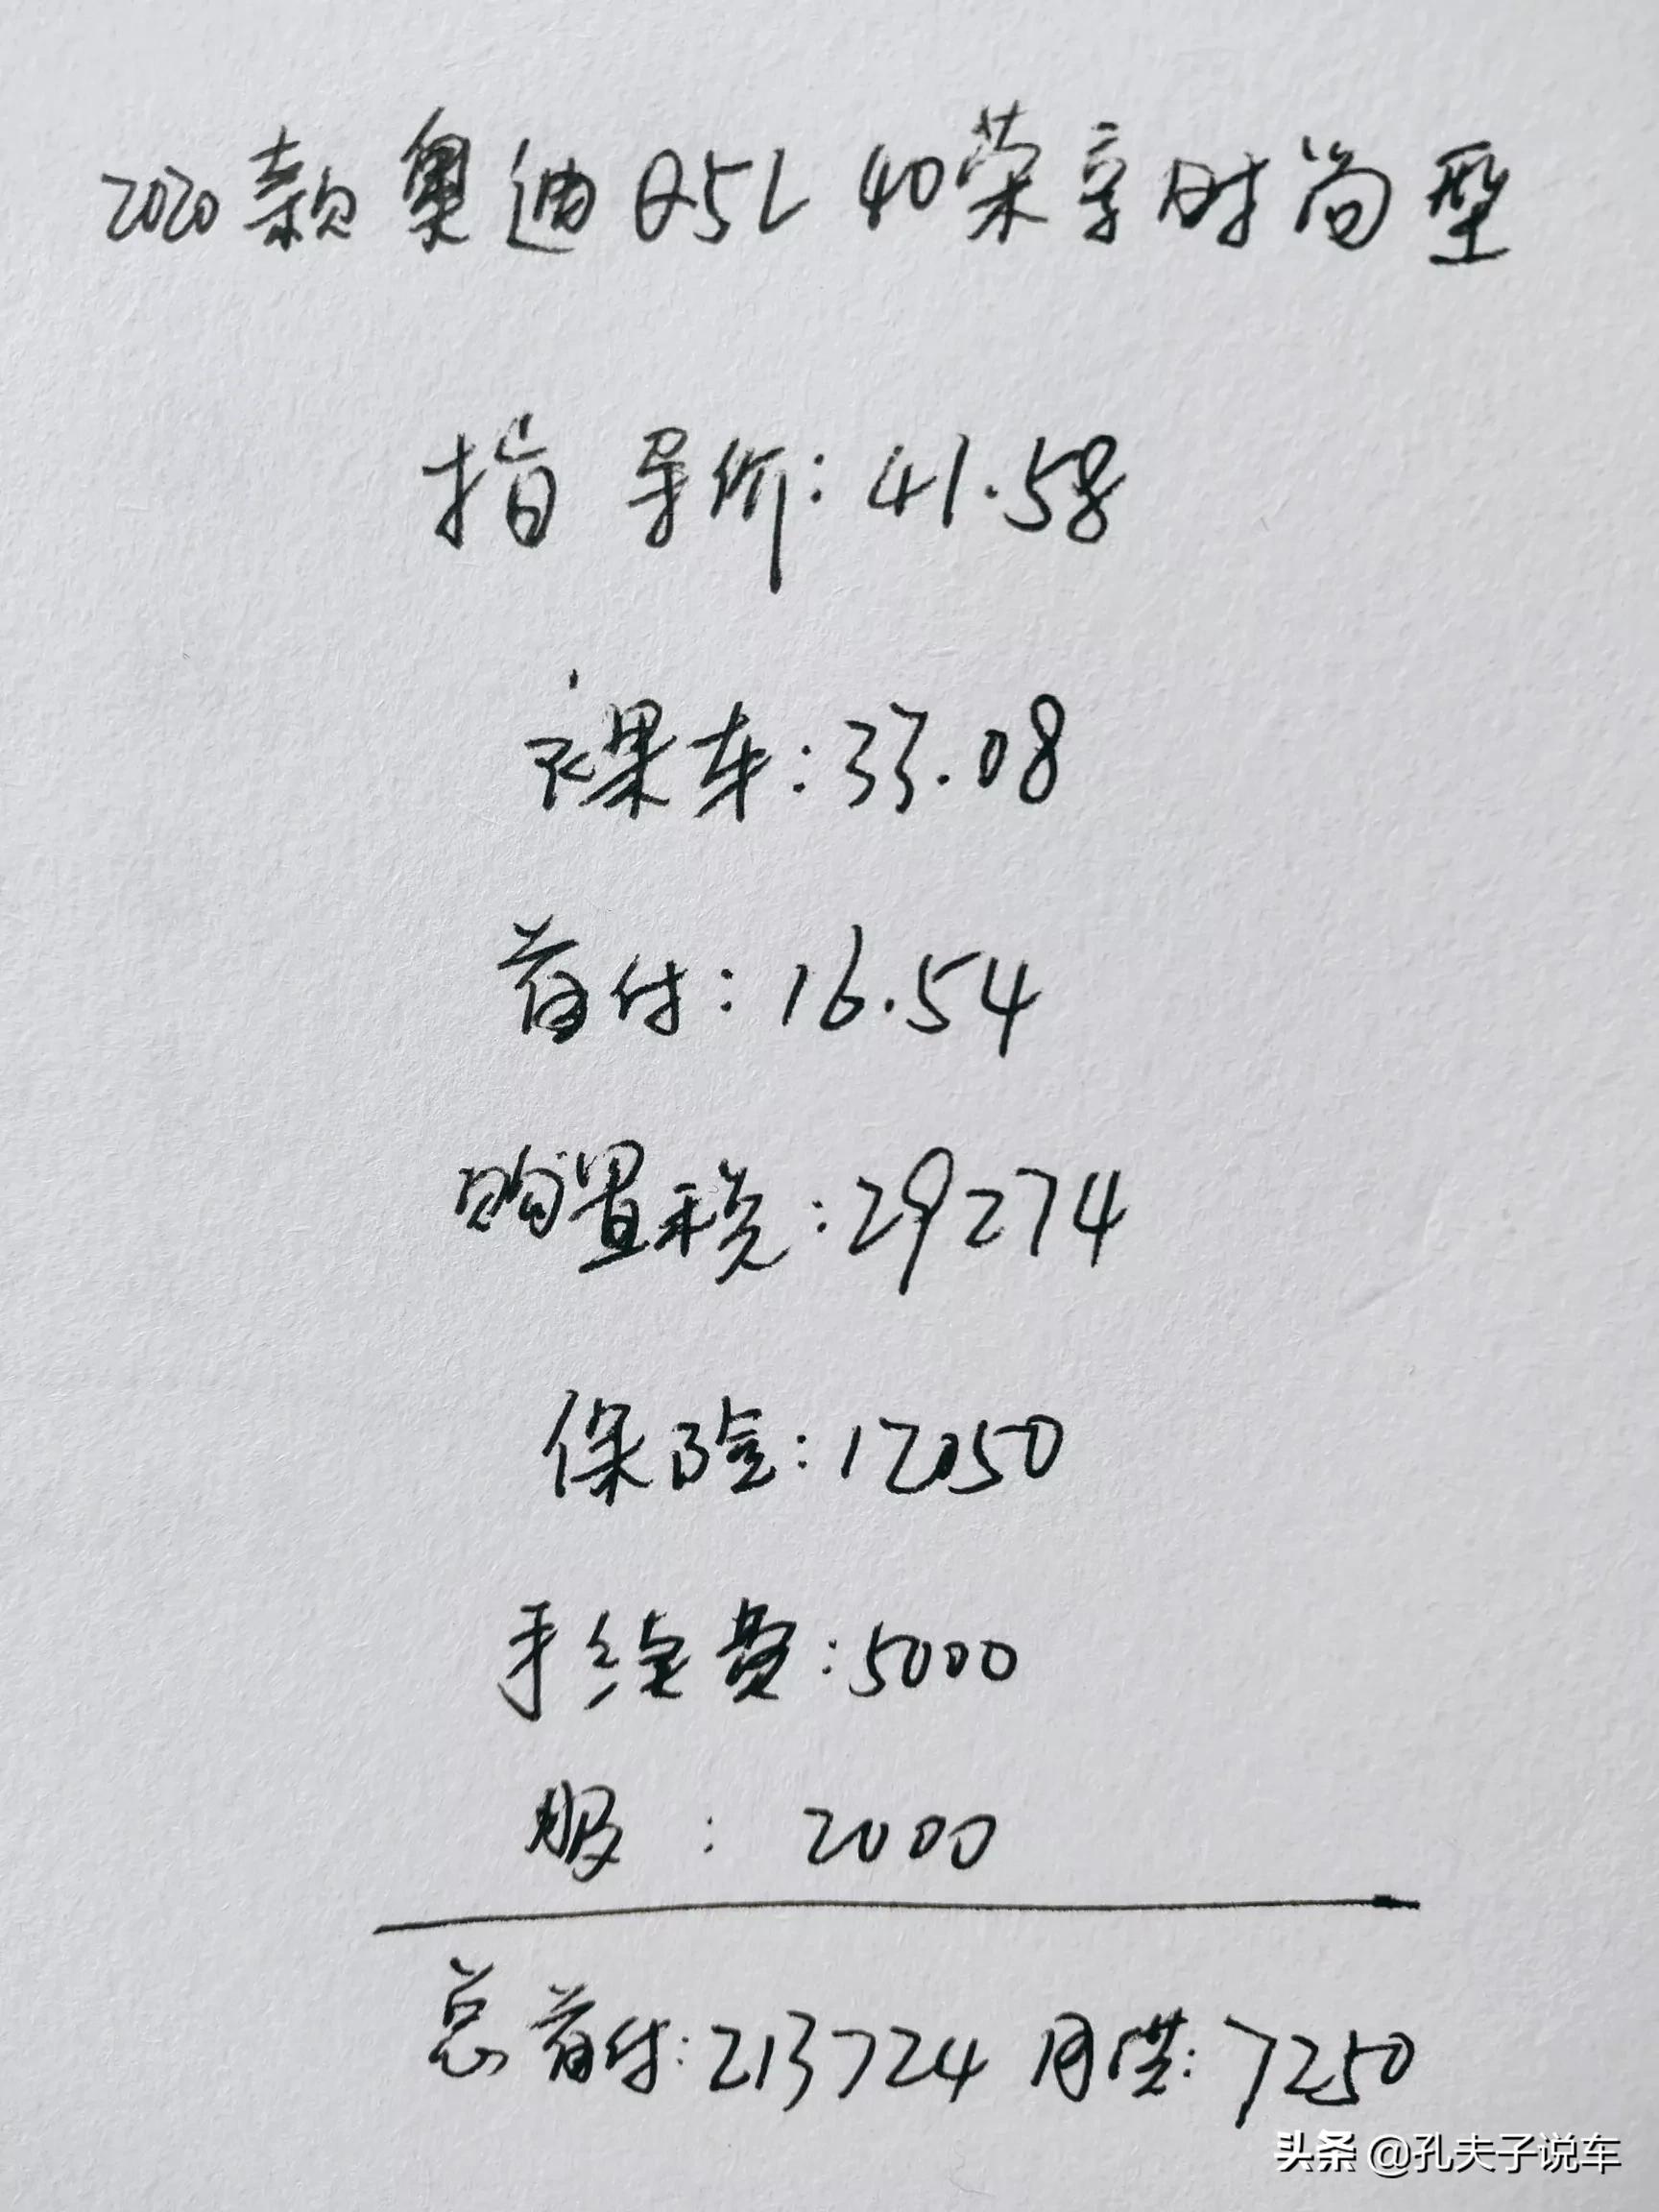 2020款奥迪Q5L 40荣享时尚型
指导价:41.58
裸车:33.08
首付:16.54
购置税:29274
保险:12050
手续费:5000
服:2000
总首付:213724 月供:7250
头条 @孔夫子说车